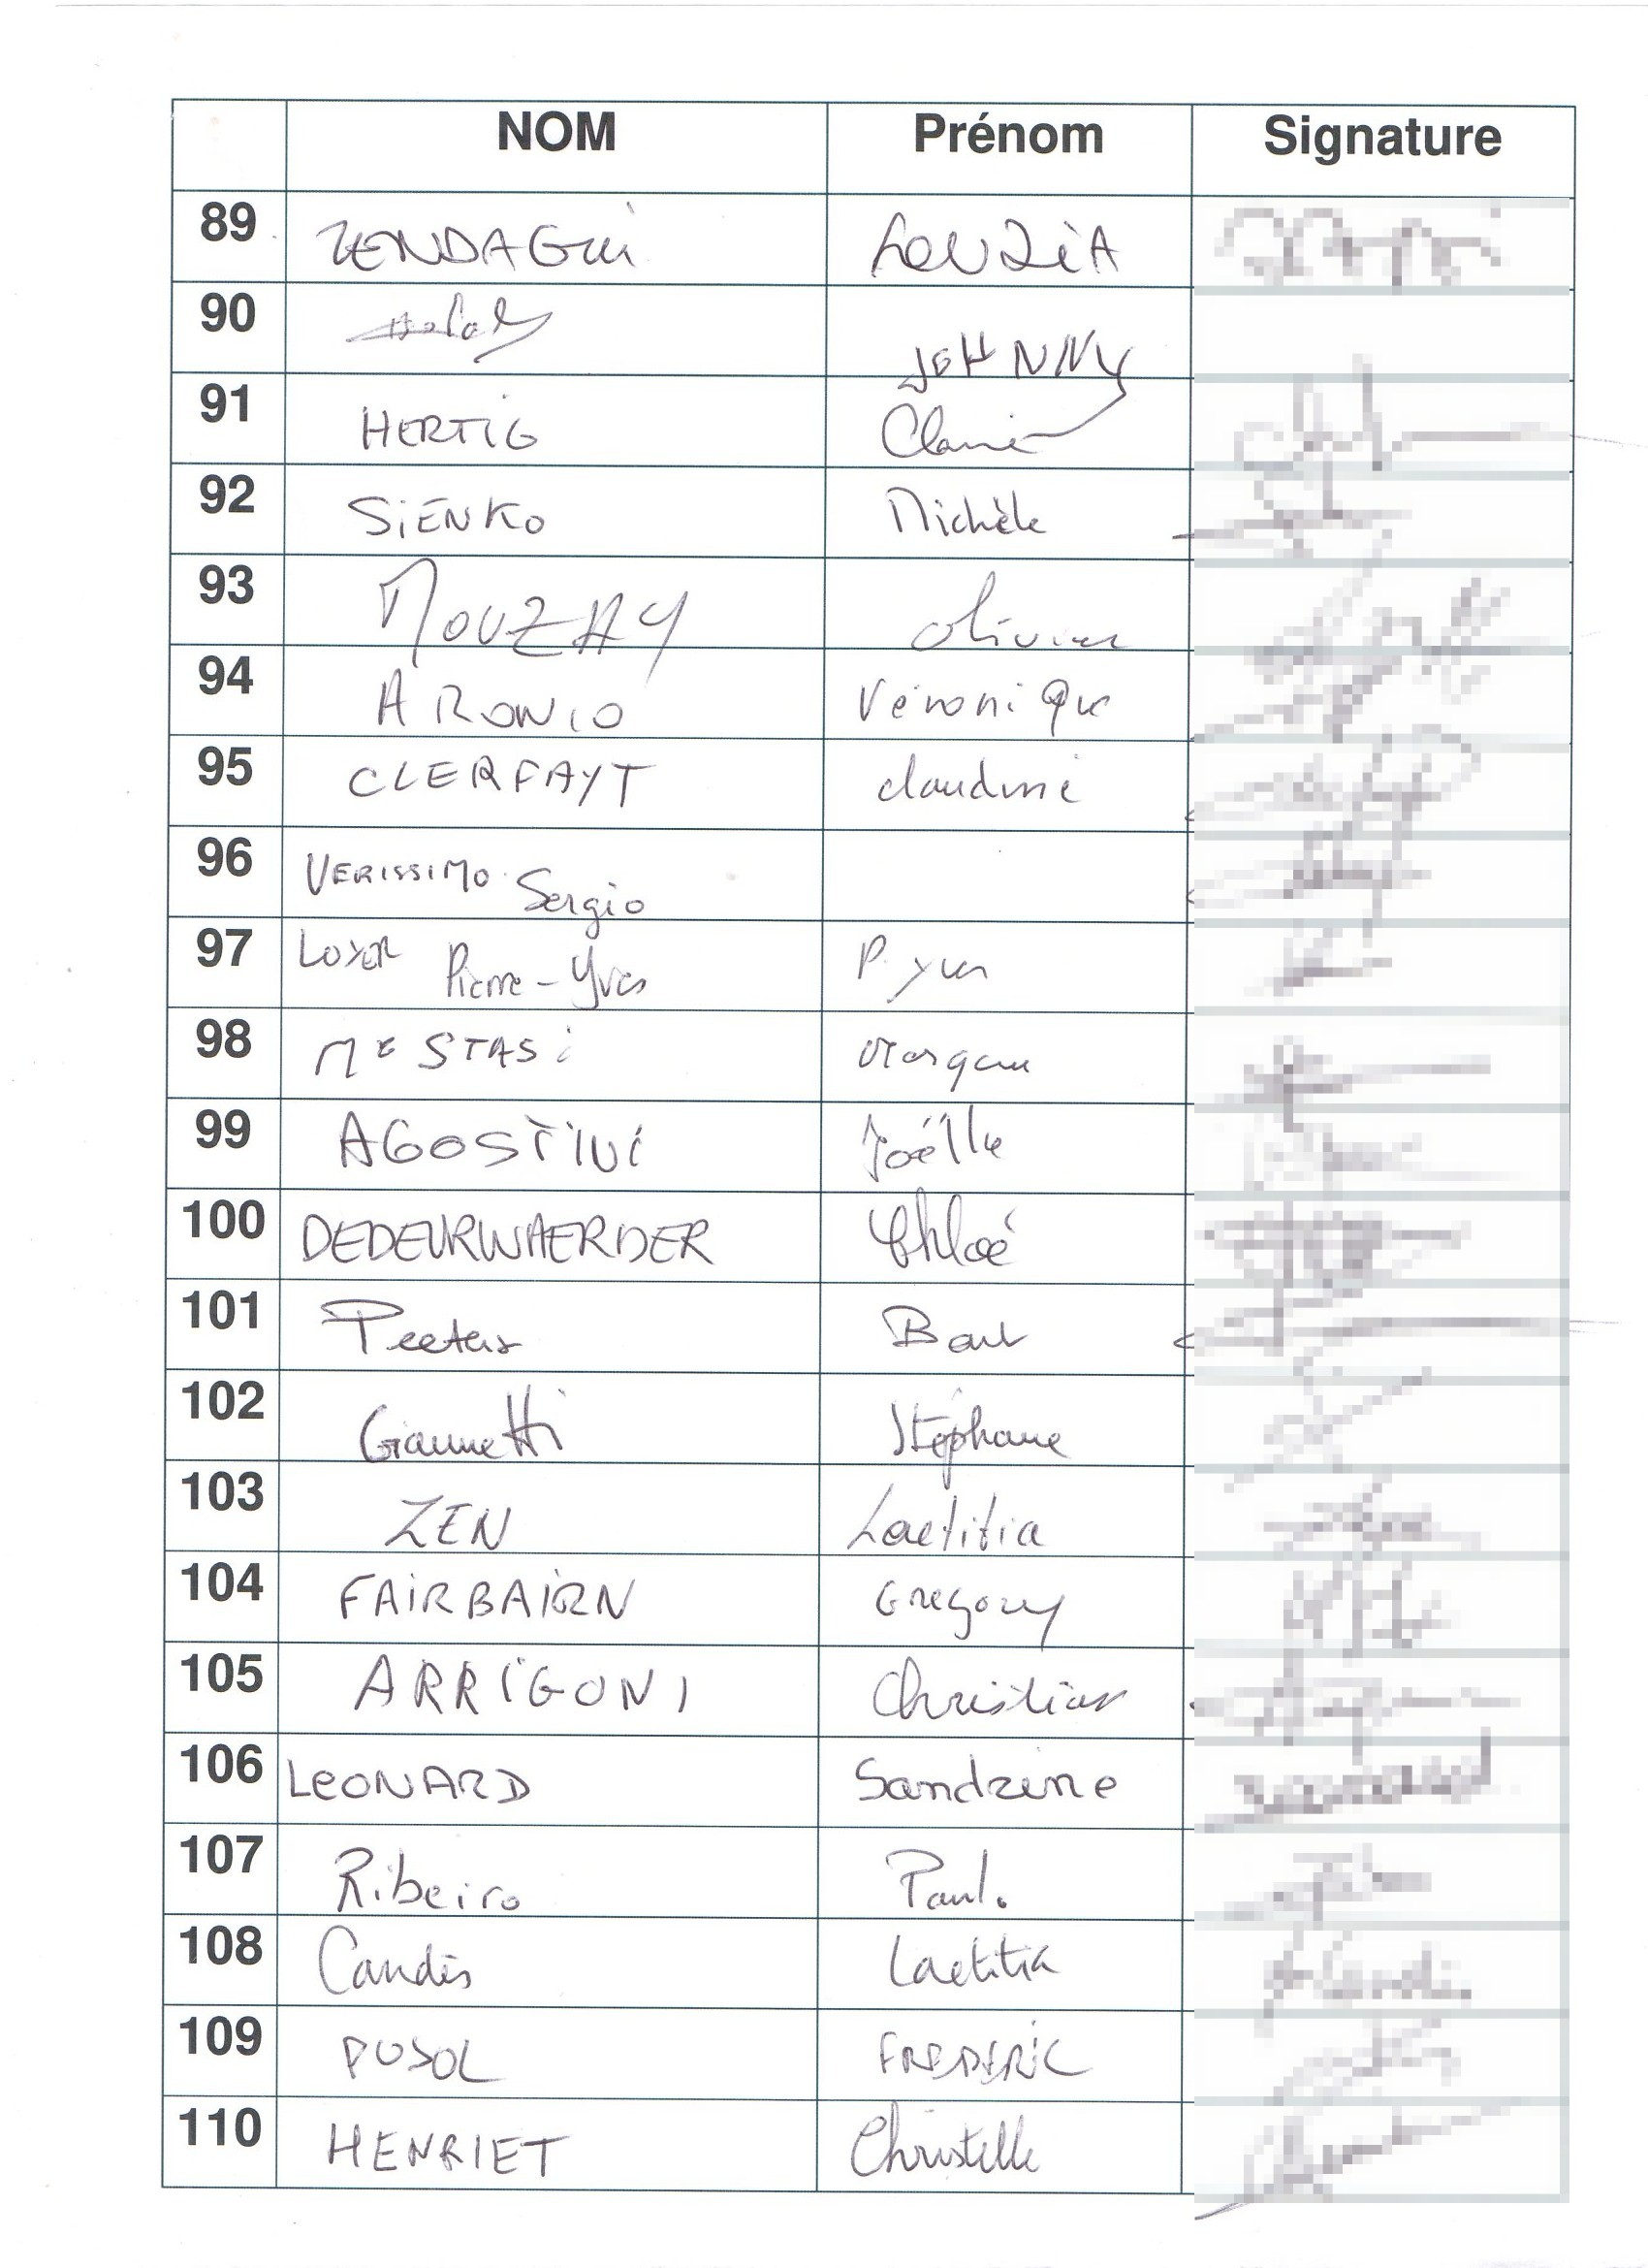 NOM Prénom Signature
89 ZENDAGUI LOUZIA
90 JOHNNY
91 HERTIG
92 SIENKO Michèle
93 MOUZAY Olivier
94 ARONIO Véronique
95 CLERFAYT claudine
96 VERISSIMO Sergio
97 LOYER Pierre-Yves P. yves
98 MESTASi Morgane
99 AGOSTINI Joëlle
100 DEDEURWAERDER Chloé
101 Peeters Bart
102 Giannetti Stéphane
103 ZEN Laetitia
104 FAIRBAIRN Gregory
105 ARRIGONI Christian
106 LEONARD Sandrine
107 Ribeiro Paul.
108 Candès Laetitia
109 PUJOL FREDERIC
110 HENRIET Christelle